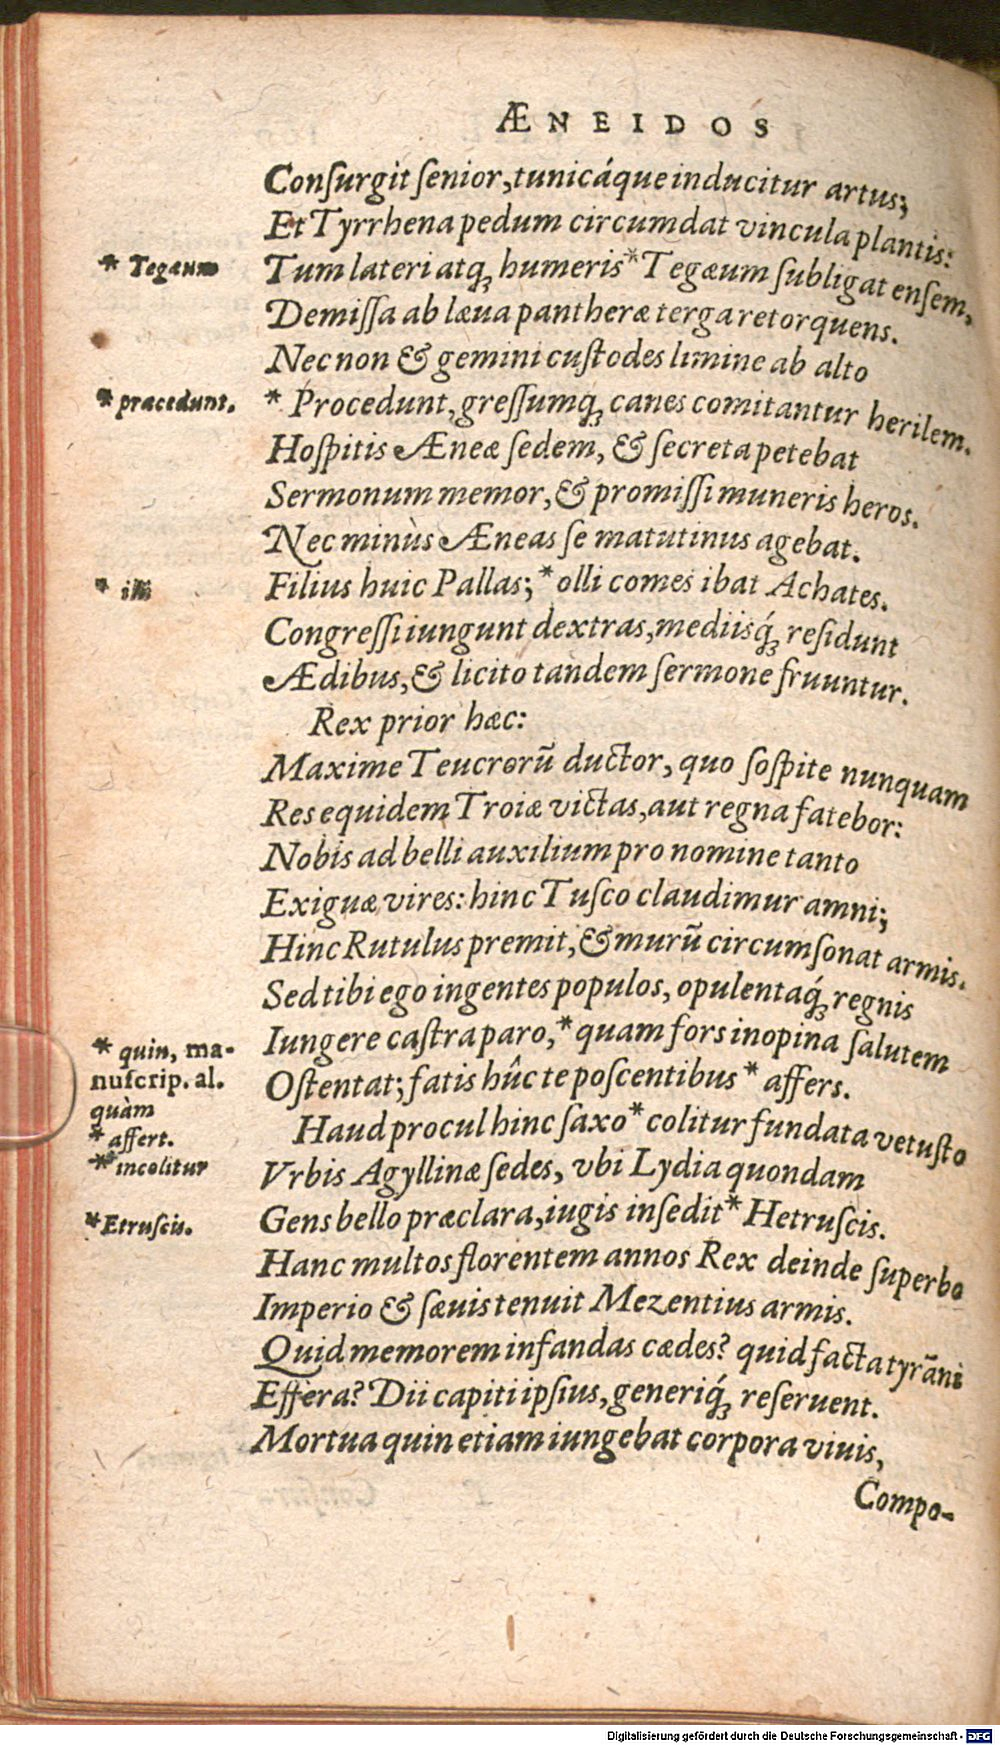 ÆNEIDOS
Conſurgit ſenior, tunicáque inducitur artus;
Et Tyrrhena pedum circumdat vincula plantis:
* Tegæum
Tum lateri atq; humeris * Tegæum ſubligat enſem,
Demiſſa ab læua pantheræ terga retorquens.
Nec non & gemini cuſtodes limine ab alto
* præcedunt.
* Procedunt, greſſumq; canes comitantur herilem.
Hoſpitis Æneæ ſedem, & ſecreta petebat
Sermonum memor, & promiſſi muneris heros.
Nec minùs Æneas ſe matutinus agebat.
* illi
Filius huic Pallas; * olli comes ibat Achates.
Congreſſi iungunt dextras, mediisq́; reſidunt
Ædibus, & licito tandem ſermone fruuntur.
Rex prior hæc:
Maxime Teucrorũ ductor, quo ſoſpite nunquam
Res equidem Troiæ victas, aut regna fatebor:
Nobis ad belli auxilium pro nomine tanto
Exiguæ vires: hinc Tuſco claudimur amni;
Hinc Rutulus premit, & murũ circumſonat armis.
Sed tibi ego ingentes populos, opulentaq́; regnis
* quin, ma-
nuſcrip. al.
quàm
Iungere caſtra paro, * quam fors inopina ſalutem
Oſtentat; fatis hûc te poſcentibus * affers.
* affert.
* incolitur
Haud procul hinc ſaxo * colitur fundata vetuſto
Vrbis Agyllinæ ſedes, vbi Lydia quondam
* Etruſcis.
Gens bello præclara, iugis inſedit * Hetruſcis.
Hanc multos florentem annos Rex deinde ſuperbo
Imperio & ſæuis tenuit Mezentius armis.
Quid memorem infandas cædes? quid facta tyrãni
Effera? Dii capiti ipſius, generiq́; reſeruent.
Mortua quin etiam iungebat corpora viuis,
Compo-
Digitalisierung gefördert durch die Deutsche Forschungsgemeinschaft - DFG